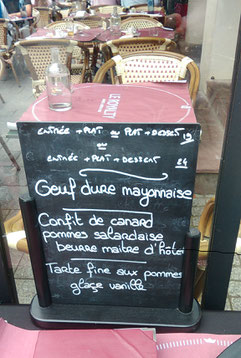 LE BONAPARTE
ENTRÉE + PLAT ou PLAT + DESSERT 19
ou
ENTRÉE + PLAT + DESSERT 24
Oeuf dure mayonnaise
Confit de canard
pommes salardaise
beurre maitre d'hôtel
Tarte fine aux pommes
glaçe vanille